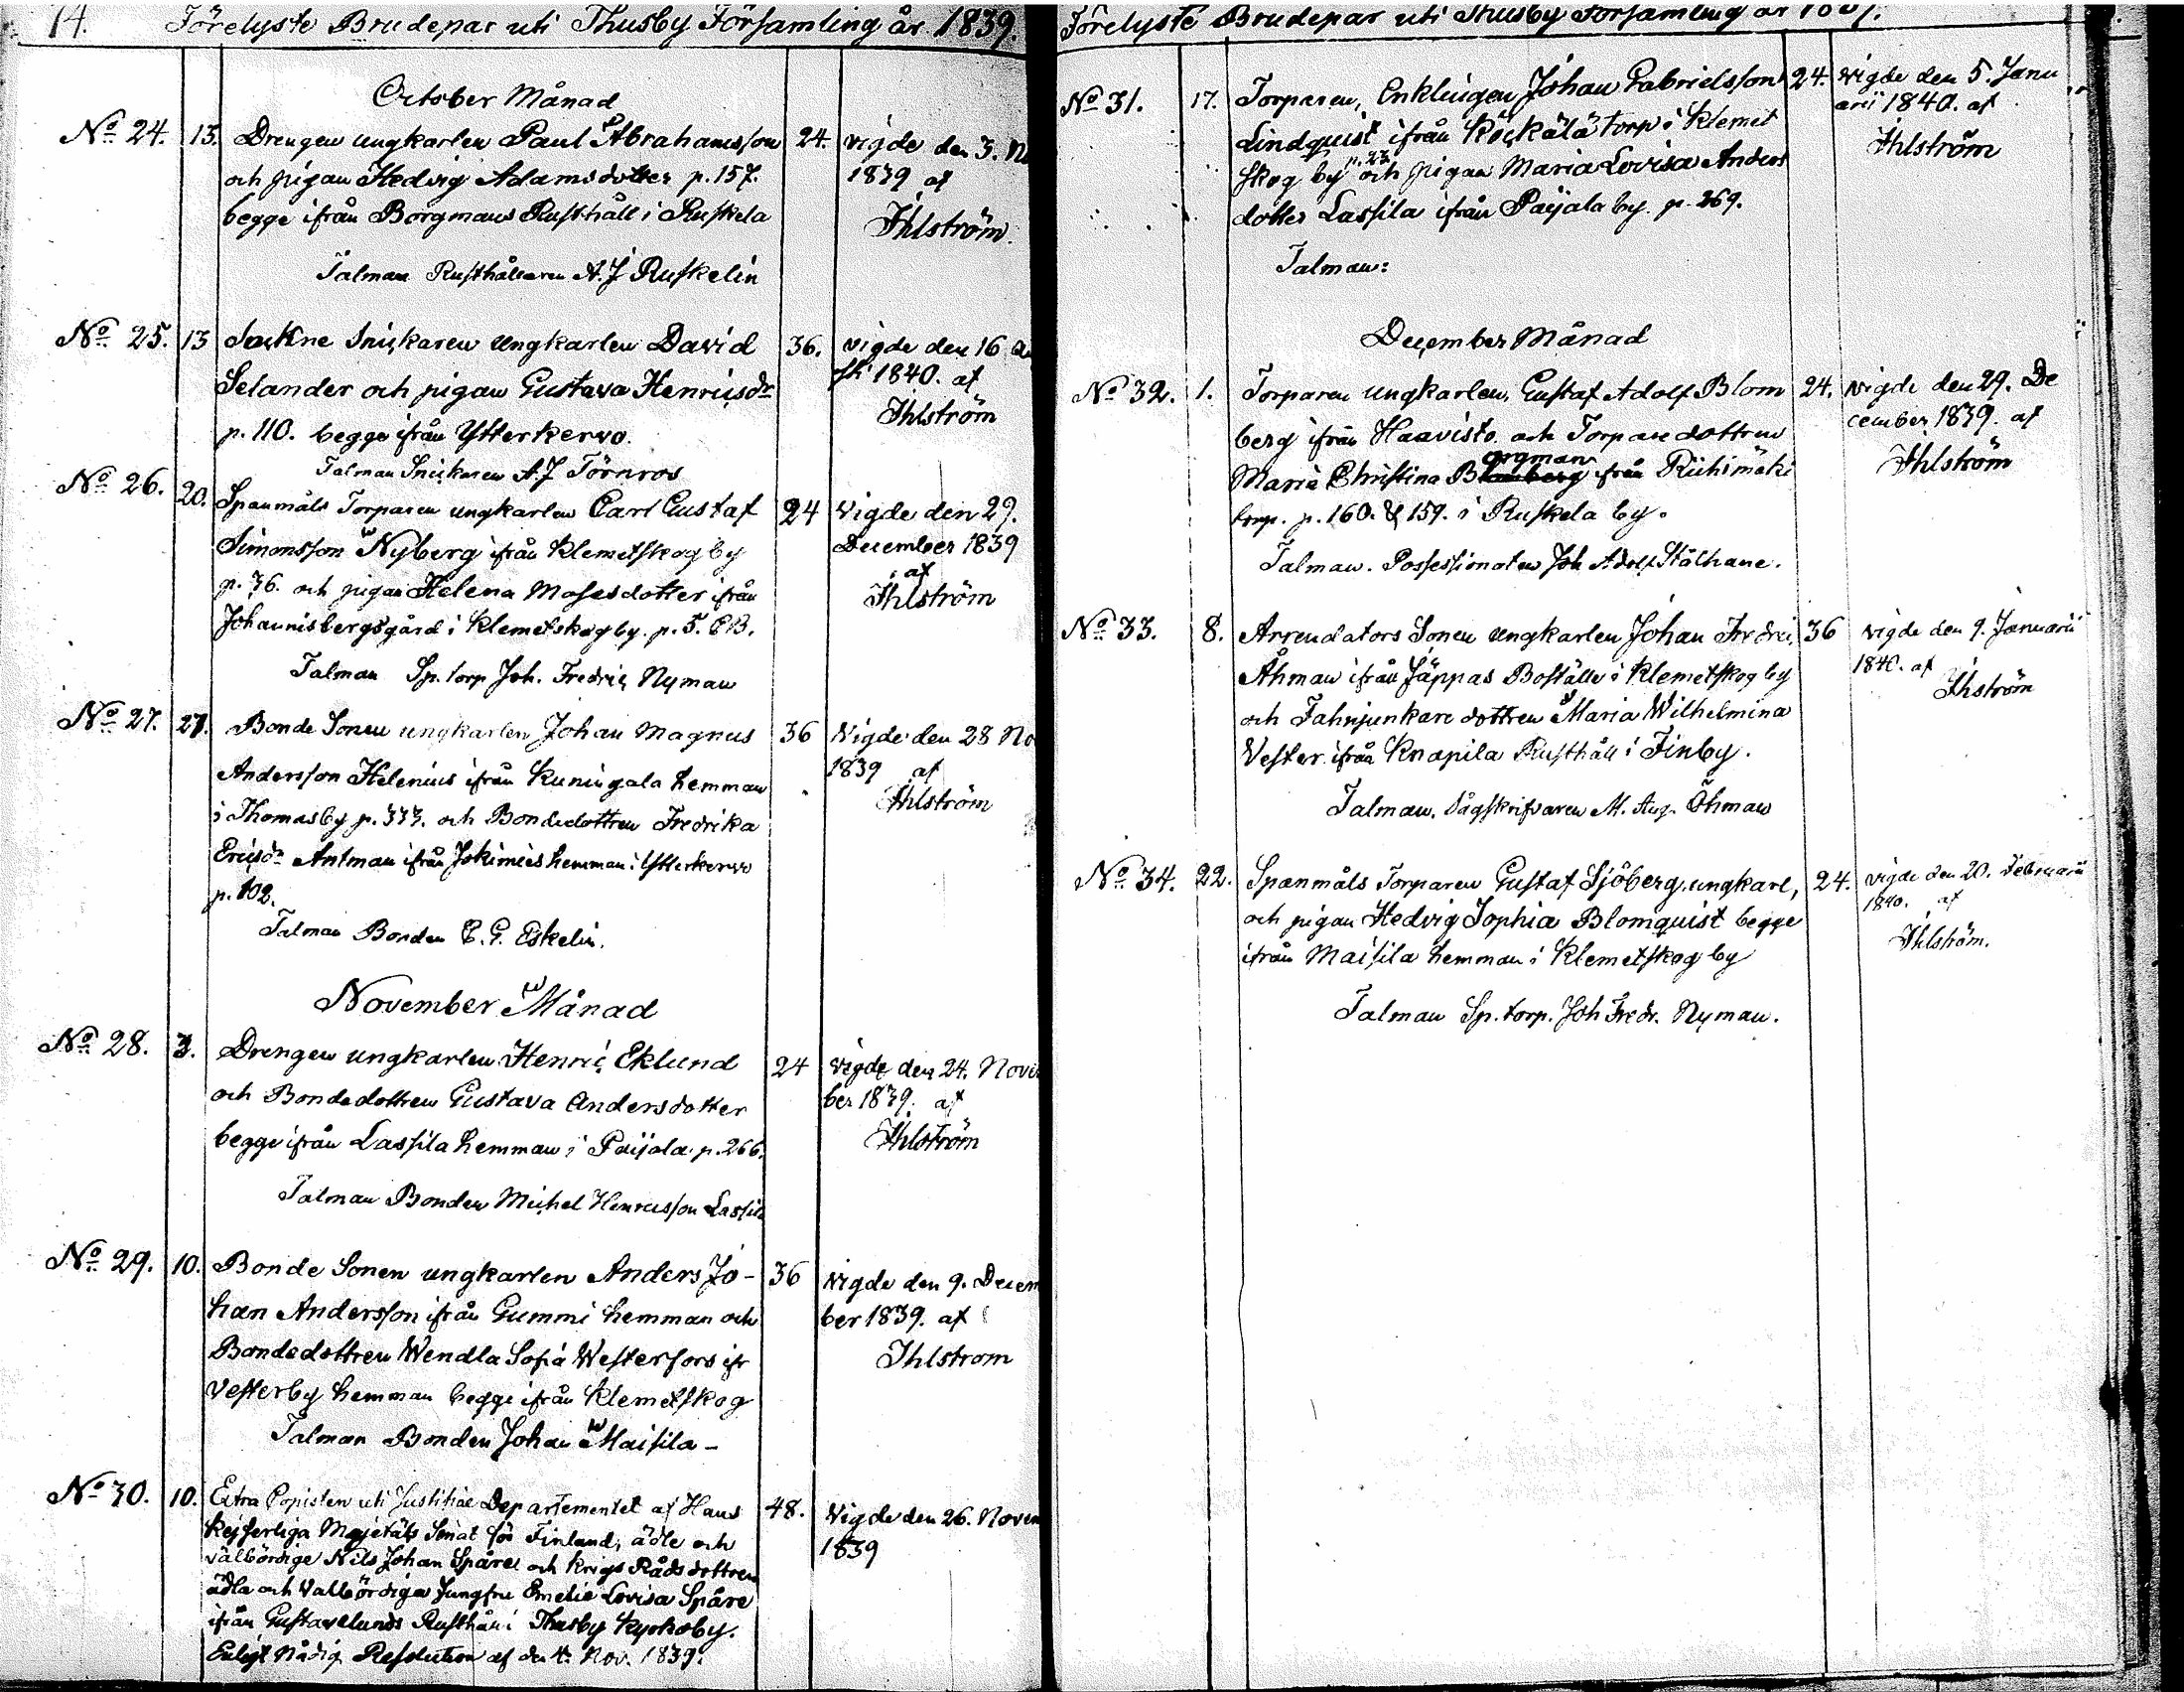 14. Förelyste Brudepar uti Thusby Församling år 1839.
October Månad
No 24. 13. Drengen ungkarlen Paul Abrahamsson 24. vigde den 3. N
och pigan Hedvig Adamsdotter p. 157. 1839 af
begge ifrån Borgmans Rusthåll i Ruskela Ihlström.
Talman Rusthållaren A. J Ruskelin
No 25. 13 Sockne Snickaren ungkarlen David 36. vigde den 16
Selander och pigan Gustava Henricsdr 1840. af
p. 110. begge ifrån Ytterkervo. Ihlström
Talman Snickaren A. J Törnros
No 26. 20. Spanmåls Torparen ungkarlen Carl Gustaf 24 vigde den 29.
Simonsson Nyberg ifrån Klemetskog by December 1839
p. 36. och pigan Helena Mosesdotter ifrån af
Johannisbergsgård i Klemetskog by. p. 5. Ihlström
Talman Sp. torp Joh. Fredric Nyman
No 27. 27. Bonde Sonen ungkarlen Johan Magnus 36 Vigde den 28 No
Andersson Helenius ifrån Kuningala hemman 1839 af
i Thomasby p. 333. och Bondedottren Fredrika Ihlström
Ericsdr Antman ifrån Jokimies hemman i Ytterkervo
p. 102.
Talman Bonden E. G. Eskelin.
November Månad
No 28. 3. Drengen ungkarlen Henric Eklund 24 vigde den 24. Novem
och Bondedottren Gustava Andersdotter ber 1839. af
begge ifrån Lassila hemman i Paijala p. 266. Ihlström
Talman Bonden Michel Henricsson Lassila
No 29. 10. Bonde Sonen ungkarlen Anders Jo- 36 vigde den 9. Decem
han Andersson ifrån Gummi hemman och ber 1839. af
Bondedottren Wendla Sofia Westerfors ifr Ihlstrom
Vesterby hemman begge ifrån Klemetskog
Talman Bonden Johan Maisila -
No 30. 10. Extra Copisten uti Justitiæ Departementet af Hans 48. Vigde den 26. Novem
Kejserliga Majestäts Senat för Finland, ädle och 1839
välbördige Nils Johan Spåre och Krigs Råds dottren
ädla och Välbördiga Jungfru Emelie Lovisa Spåre
ifrån Gustavelunds Rusthåll i Thusby Kyrkoby.
Enligt Nådig Resolution af den 4. Nov. 1839.
Förelyste Brudepar uti Thusby Församling år 1839.
No 31. 17. Torparen, Enklingen Johan Gabrielsson 24. vigde den 5. Janu
Lindquist ifrån Köckälä torp i Klemet arii 1840. af
skog by p. 23 och pigan Maria Lovisa Anders Ihlström
dotter Lassila ifrån Paijala by. p. 269.
Talman:
December Månad
No 32. 1. Torparen ungkarlen, Gustaf Adolf Blom 24. vigde den 29. De
berg ifrån Haavisto och Torparedottren cember 1839. af
Maria Christina Borgman ifrån Riihimäki Ihlström
torp. p. 160. & 159. i Ruskela by.
Talman. Possessionaten Joh Adolf Stålhane.
No 33. 8. Arrendators Sonen ungkarlen Johan Fredric 36 vigde den 9. Januarii
Åhman ifrån Jäppas Boställe i Klemetskog by 1840. af
och Fahnjunkare dottren Maria Wilhelmina Ihström
Vester ifrån Knapila Rusthåll i Finby.
Talman. Sågskrifvaren M. Aug. Öhman
No 34. 22. Spanmåls Torparen Gustaf Sjöberg, ungkarl, 24. vigde den 20. Februarii
och pigan Hedvig Sophia Blomquist begge 1840. af
ifrån Maisila hemman i Klemetskog by Ihlström.
Talman Sp. torp. Joh Fredr. Nyman.